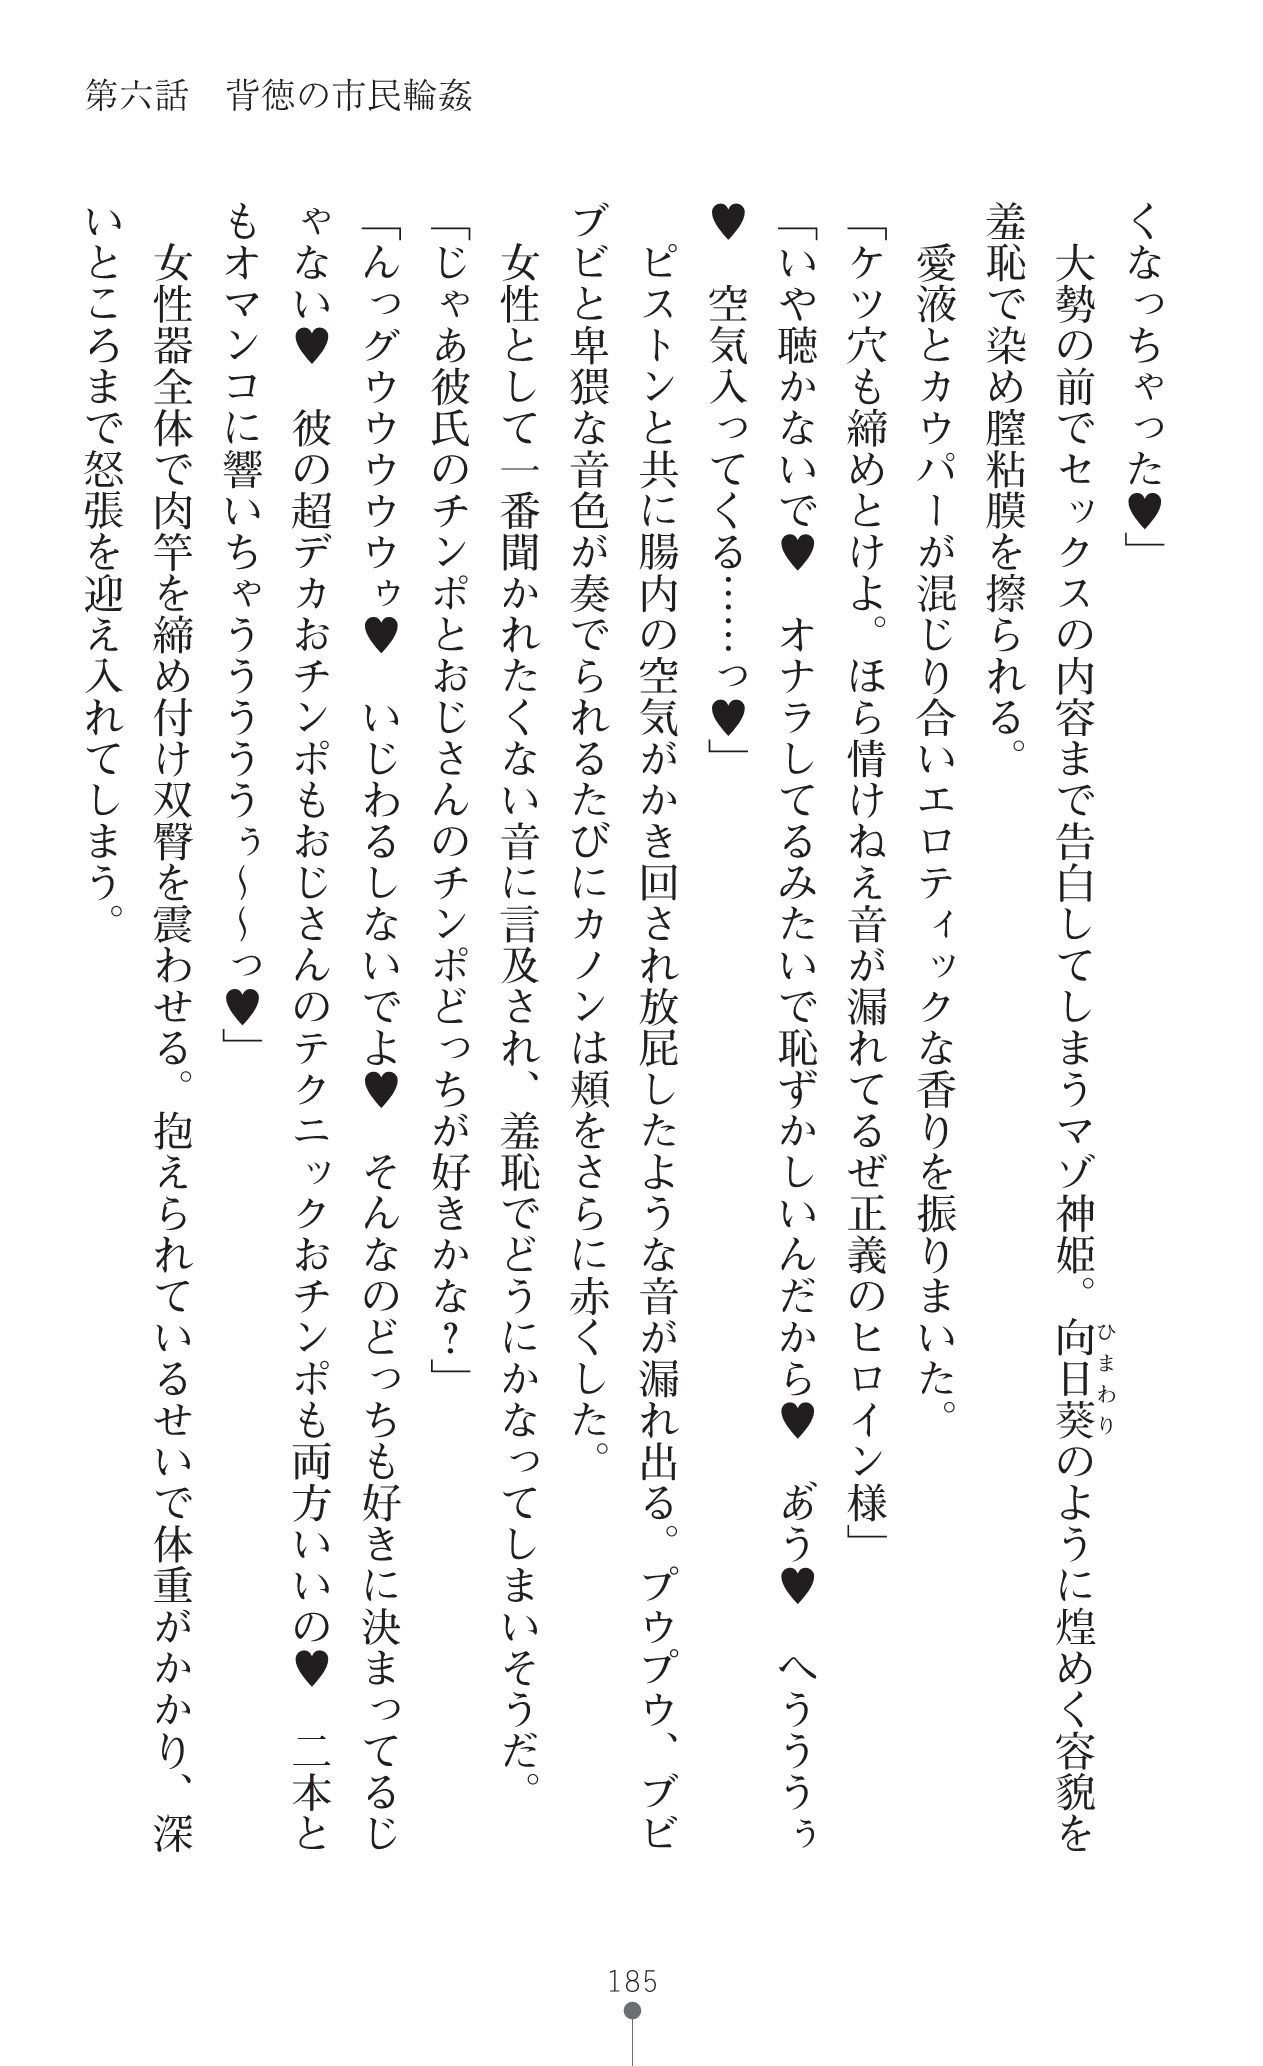 第六話　背徳の市民輪姦
くなっちゃった♥」
　大勢の前でセックスの内容まで告白してしまうマゾ神姫。向日葵のように煌めく容貌を
ひまわり
羞恥で染め膣粘膜を擦られる。
　愛液とカウパーが混じり合いエロティックな香りを振りまいた。
「ケツ穴も締めとけよ。ほら情けねえ音が漏れてるぜ正義のヒロイン様」
「いや聴かないで♥　オナラしてるみたいで恥ずかしいんだから♥　あ゙う♥　へうううぅ
♥　空気入ってくる……っ♥」
　ピストンと共に腸内の空気がかき回され放屁したような音が漏れ出る。プウプウ、ブビ
ブビと卑猥な音色が奏でられるたびにカノンは頬をさらに赤くした。
　女性として一番聞かれたくない音に言及され、羞恥でどうにかなってしまいそうだ。
「じゃあ彼氏のチンポとおじさんのチンポどっちが好きかな？」
「んっグウウウウウゥ♥　いじわるしないでよ♥　そんなのどっちも好きに決まってるじ
ゃない♥　彼の超デカおチンポもおじさんのテクニックおチンポも両方いいの♥　二本と
もオマンコに響いちゃうううううぅ～～っ♥」
　女性器全体で肉竿を締め付け双臀を震わせる。抱えられているせいで体重がかかり、深
いところまで怒張を迎え入れてしまう。
185